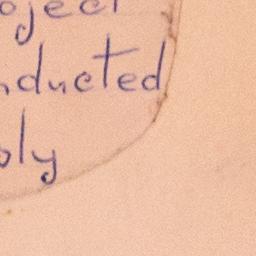 oject
nducted
bly